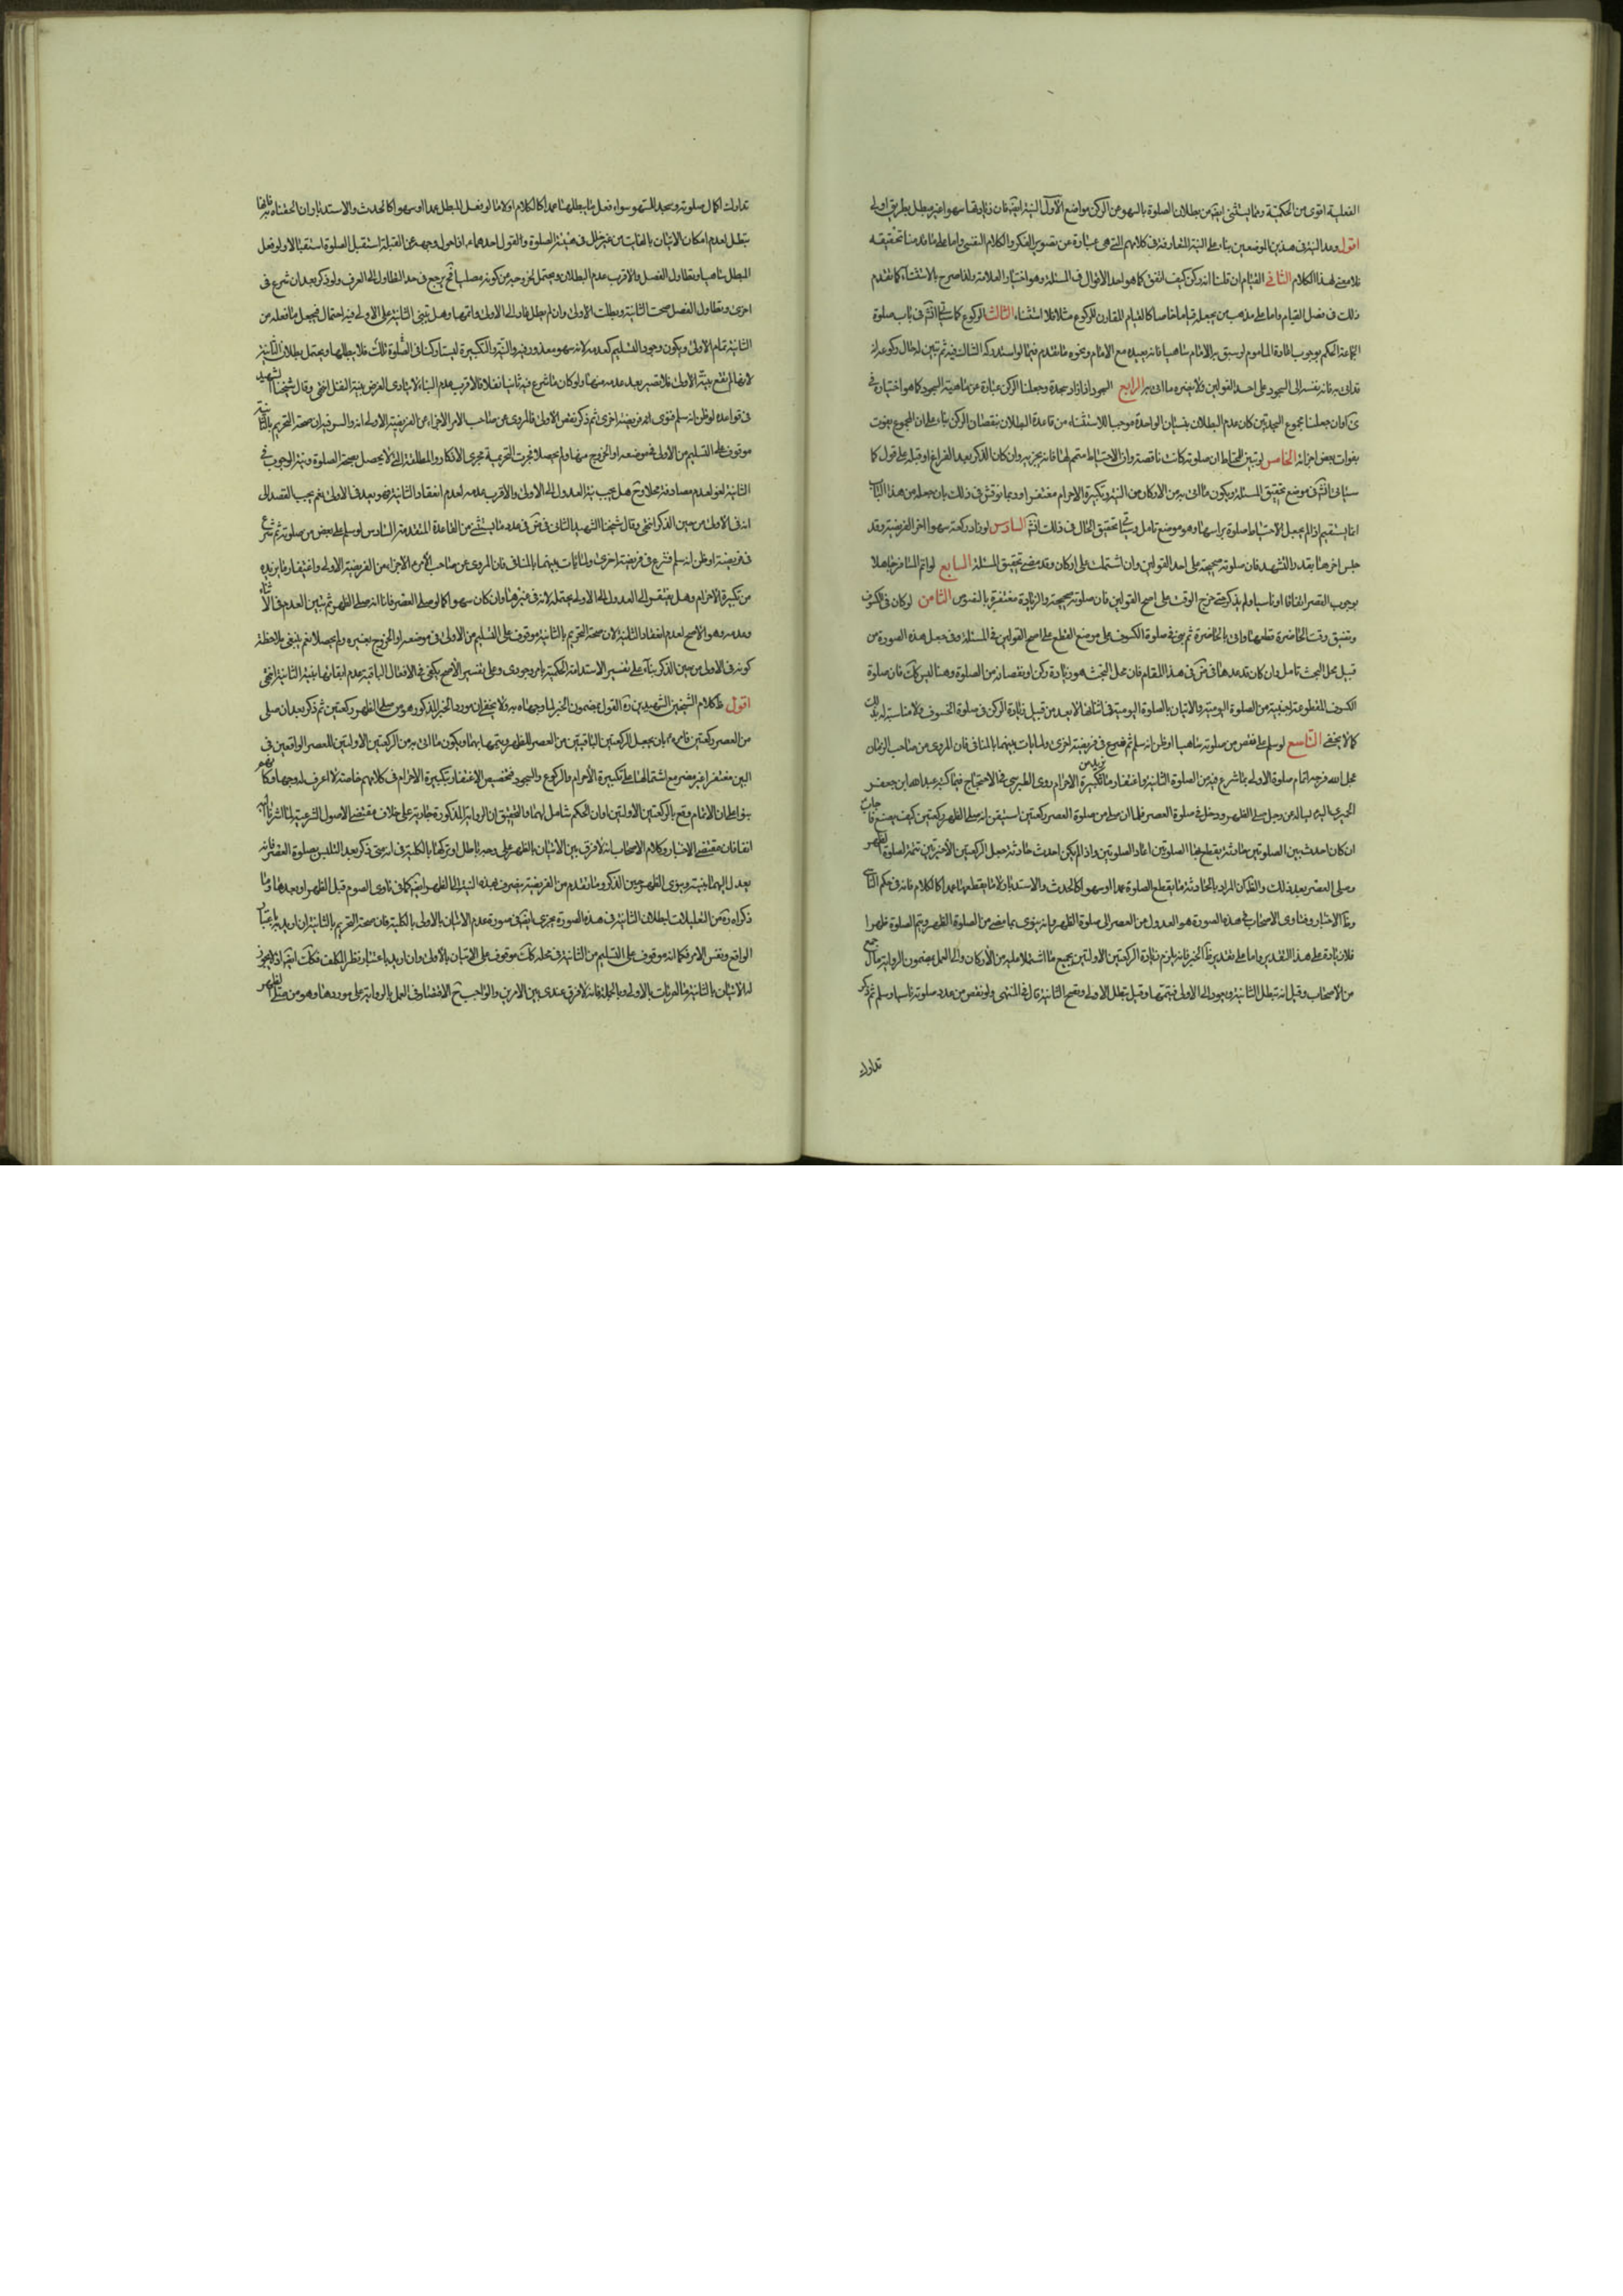 الفعلية اقوى من الحكمية ومما يستثنى ايضا من بطلان الصلوة بالسهو عن الركن مواضع الاول النية ايضا فان زيادتها سهوا غير مبطل بطريق اولى
اقول وعد النية فى هذين الموضعين بناء على النية المتعارفة فى كلامهم التى هى عبارة عن تصوير الفكر والكلام النفسى واما على ما قدمنا تحقيقه
فلا معنى لهذا الكلام الثانى القيام ان قلنا انه ركن كيف اتفق كما هو احد الاقوال فى المسئلة وهو اختيار العلامة ولذا صرح بالاستثناء كما تقدم
ذلك فى فصل القيام واما على مذهب من يجعله قياما خاصا كالقيام المقارن للركوع مثلا فلا استثناء الثالث الركوع كما سيأتى فى باب صلوة
الجماعة الحكم بوجوب اعادة المأموم لو سبق به الامام ساهيا فانه يعيده مع الامام ونحوه ما تقدم فيما لو استدرك الشاك فيه ثم تبين له حال ركوعه انه
قد اتى به فانه يفسد الى السجود على احد القولين ولا يضره ما اتى به الرابع السجود اذا زاد سجدة وجعلنا الركن عبارة عن ماهية السجود كما هو اختياره فى
كرى وان جعلنا مجموع السجدتين كان عدم البطلان بنسيان الواحدة موجبا للاستثناء من قاعدة البطلان بنقصان الركن بناء على ان المجموع يفوت
بفوات بعض اجزائه الخامس لو تبين للمحتاط ان صلوته كانت ناقصة وان الاحتياط متمم لها فانه يجزيه وان كان الذكر بعد الفراغ او قبله على قول كما
سيأتى فى موضع تحقيق المسئلة ويكون ما اتى به من الاركان من النية وتكبيرة الاحرام مغتفرا وربما نوقش فى ذلك بان جعله من هذا الباب
انما يستقيم اذا لم يجعل الاحتياط صلوة براسها وهو موضع تامل وسيأتى تحقيق الحال فى ذلك السادس لو زاد ركعة سهوا اخر الفريضة وقد
جلس اخرها بقدر التشهد فان صلوته صحيحة على احد القولين وان اشتملت على اركان وقد مضى تحقيق المسئلة السابع لو اتم المسافر جاهلا
بوجوب القصر اتفاقا او ناسيا ولم يذكر حتى خرج الوقت على اصح القولين فان صلوته صحيحة والزيادة مغتفرة بالنصوص الثامن لو كان فى الكسوف
وتضيق وقت الحاضرة قطعها واتى بالحاضرة ثم بنى فى صلوة الكسوف على موضع القطع على اصح القولين فى المسئلة وفى جعل هذه الصورة من
قبيل محل البحث تامل وان كان قد عدها فى ض فى هذا المقام فان محل البحث هو زيادة ركن او نقصانه من الصلوة وهنا ليس كك فان صلوة
الكسوف المقطوعة اجنبية من الصلوة اليومية والاتيان بالصلوة اليومية فى اثنائها لا يعد من قبيل زيادة الركن فى صلوة الخسوف ولا مناسبة له بذلك
كما لا يخفى التاسع لو سلم على نقص من صلوته ساهيا او ظن انه سلم ثم شرع فى فريضة اخرى ولما يات بينهما بالمنافى فان المروى عن صاحب الزمان
عجل الله فرجه اتمام صلوة الاولى بما شرع فيه من الصلوة الثانية واغتفار ما يزيد من تكبيرة الاحرام روى الطبرسى فى الاحتجاج فيما كتبه عبد الله ابن جعفر
الحميرى اليه يساله عن رجل صلى الظهر ودخل فى صلوة العصر فلما ان صلى من صلوة العصر ركعتين استيقن انه صلى الظهر ركعتين كيف يصنع فاجاب
ان كان احدث بين الصلوتين حادثة يقطع بها الصلوتين اعاد الصلوتين واذا لم يكن احدث حادثة جعل الركعتين الاخيرتين تتمة لصلوة الظهر
وصلى العصر بعد ذلك والظ ان المراد بالحادثة ما يقطع الصلوة عمدا او سهوا كالحدث والاستدبار لا ما يقطعها عمدا كالكلام فانه فى حكم الناسى
وظ الاخبار وفتاوى الاصحاب فى هذه الصورة هو العدول من العصر الى صلوة الظهر وانه ينوى بما مضى من الصلوة الظهر ويتم الصلوة ظهرا
فلا زيادة على هذا التقدير واما على تقدير ظ الخبر فانه يلزم زيادة الركعتين الاولتين بجميع ما اشتملا عليه من الاركان والى العمل بمضمون الرواية مال جمع
من الاصحاب وقيل انه تبطل الثانية ويعود الى الاولى فيتمها وقيل تبطل الاولى وتصح الثانية قال فى المنتهى ولو نقص من عدد صلوته ناسيا وسلم ثم ذكر
تدارك
تدارك اكمال صلوته وسجد للسهو سواء فعل ما يبطلها عمدا كالكلام او لا اما لو فعل المبطل عمدا او سهوا كالحدث والاستدبار ان الحقناه به فانها
تبطل لعدم امكان الاتيان بالفايت من غير خلل فى هيئة الصلوة والقول احدهما اذا حول وجهه عن القبلة استقبل الصلوة استقبالا ولو فعل
المبطل ساهيا وتطاول الفصل والاقرب عدم البطلان ويحتمل لخروجه من كونه مصليا فح يرجع فى حد التطاول الى العرف ولو ذكر بعد ان شرع فى
اخرى وتطاول الفصل صحت الثانية وبطلت الاولى وان لم يطل عاد الى الاولى واتمها وهل تبنى الثانية على الاولى فيه احتمال فيجعل ما فعله من
الثانية تمام الاولى ويكون وجود التسليم كعدمه لانه سهو معذور فيه والنية والتكبيرة ليستا ركنا فى الصلوة تلك فلا يبطلها ويحتمل بطلان الثانية
لانها لم تقع بنية الاولى فلا تصير بعد عدمه منها ولو كان ما شرع فيه ثانيا نفلا فالاقرب عدم البناء لانه لا يتادى الفرض بنية النفل انتهى وقال شيخنا الشهيد
فى قواعده لو ظن انه سلم فنوى فريضة اخرى ثم ذكر نقص الاولى فالمروى عن صاحب الامر الاجزاء عن الفريضة الاولى والسر فيه ان صحة التحريم بالثانية
موقوف على التسليم من الاولى فى موضعه او الخروج منها ولم يحصلا فجرت التحريمة مجرى الاذكار المطلقة التى لا يحصل بصحة الصلوة ونية الوجوب فى
الثانية لغو لعدم مصادفة محلا وح هل يجب نية العدول الى الاولى والاقرب عدمه لعدم انعقاد الثانية فهو بعد فى الاولى نعم يجب القصد الى
انه فى الاولى من حين الذكر انتهى وقال شيخنا الشهيد الثانى فى ض فى عدد ما يستثنى من القاعدة المتقدمة السادس لو سلم على بعض من صلوته ثم شرع
فى فريضة او ظن انه سلم فشرع فى فريضة اخرى ولما يات بينهما بالمنافى فان المروى عن صاحب الامر الاجزاء من الفريضة الاولى واغتفار ما يزيده
من تكبيرة الاحرام وهل يفتقر الى العدول الى الاولى يحتمله لانه فى غيرها وان كان سهوا كما لو صلى العصر ظانا انه صلى الظهر ثم تبين العدم فى الاثناء
وعدمه وهو الاصح لعدم انعقاد الثانية لان صحة التحريم بالثانية موقوف على التسليم من الاولى فى موضعه او الخروج بغيره ولم يحصلا نعم ينبغى ملاحظة
كونه فى الاولى من حين الذكر بناء على تفسير الاستدامة الحكمية بامر وجودى وعلى تفسير الاصح يكفى فى الافعال الباقية عدم ايقاعها بنية الثانية انتهى
اقول ظ كلام الشيخين الشهيدين ره القول بمضمون الخبر لما وجهاه به ولا يخفى ان مورد الخبر المذكور هو من صلى الظهر ركعتين ثم ذكر بعد ان صلى
من العصر ركعتين فامره بان يجعل الركعتين الباقيتين من العصر للظهر ويتمها بهما ويكون ما اتى به من الركعتين الاولتين للعصر الواقعين فى
البين مغتفرا غير مضر مع اشتمالها على تكبيرة الاحرام والركوع والسجود فتخصيص الاغتفار بتكبيرة الاحرام فى كلامهم خاصة لا اعرف له وجها
بنوا على ان الاتمام وقع بالركعتين الاولتين او ان الحكم شامل لهما والتحقيق ان الرواية المذكورة جارية على خلاف مقتضى الاصول الشرعية لما اشرنا اليه
انفا فان مقتضى الاخبار وكلام الاصحاب انه لا فرق بين الاتيان بالظهر على وجه باطل او تركها بالكلية فى انه متى ذكر بعد التلبس بصلوة العصر فانه
يعدل اليها بنيته وينوى الظهر من حين الذكر وما تقدم من الفريضة ينصرف بهذه النية الى الظهر ايضا كما فى ناوى الصوم قبل الظهر او بعدها وما
ذكراه ره من التعليلات لبطلان الثانية فى هذه الصورة يجرى ايضا فى صورة عدم الاتيان بالاولى بالكلية فان صحة التحريم بالثانية ان اريد به باعتبار
الواقع ونفس الامر فكما انه موقوف على التسليم من الثانية فى محله كك موقوف على الاتيان بالاولى وان اريد باعتبار نظر المكلف فكك ايضا اذ يجوز
له الاتيان بالثانية ما لم يات بالاولى وبالجملة فانه لا فرق عندى بين الامرين والواجب ح الاقتصار فى العمل بالرواية على موردها وهو من صلى الظهر